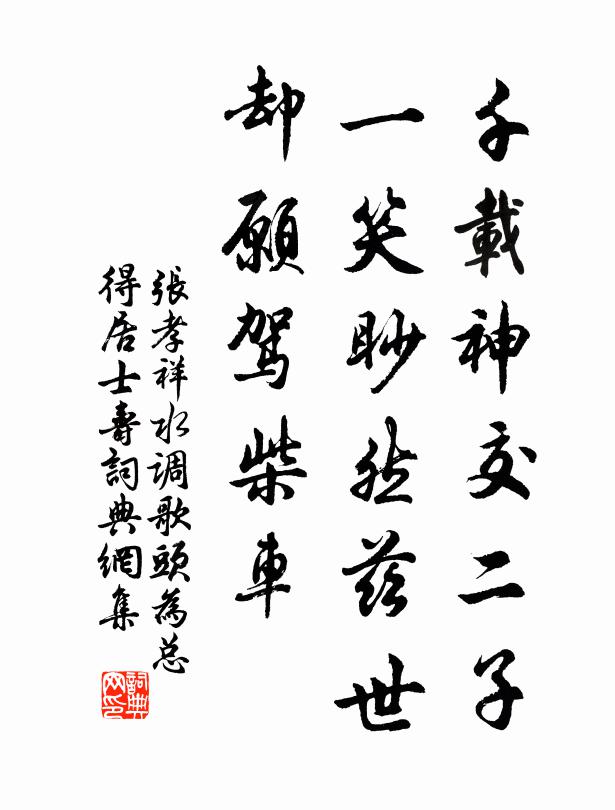 千載神交二子
一笑眇然兹世
却願駕柴車
張孝祥水调歌頭為总
得居士壽詞典網集
詞典网印